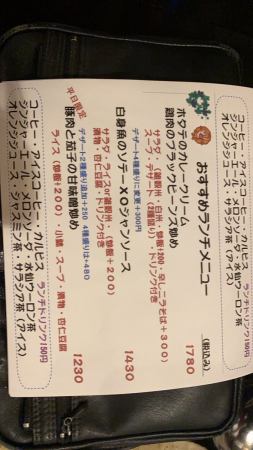 コーヒー・アイスコーヒー・カルピス ランチドリンク150円
シンジャーエール・メロンソーダ・水仙ウーロン茶
オレンジジュース・ジャスミン茶・サラシア茶(アイス)
おすすめランチメニュー (税込み)
ホタテのカレークリーム
鶏肉のブラックビーンズ炒め 1780
サラダ・(雑穀州・白米・参飯+200・辛しこうそば+300)
スープ・デザート(2種盛り)・ドリンク付き
デザート4種盛りに変更+300円
白身魚のソテーXOジャンソース 1430
サラダ・ライスor雑穀州 (参飯+200)
漬物・杏仁豆腐・ドリンク付き
デザート2種盛り追加+250 4種盛りは+480
平日限定
豚肉と茄子の甘味噌炒め 1230
ライス(参飯+200)・小鉢・スープ・漬物・杏仁豆腐
コーヒー・アイスコーヒー・カルピス ランチドリンク150円
ジンジャーエール・メロンソーダ・水仙ウーロン茶
オレンジジュース・ジャスミン茶・サラシア茶(アイス)